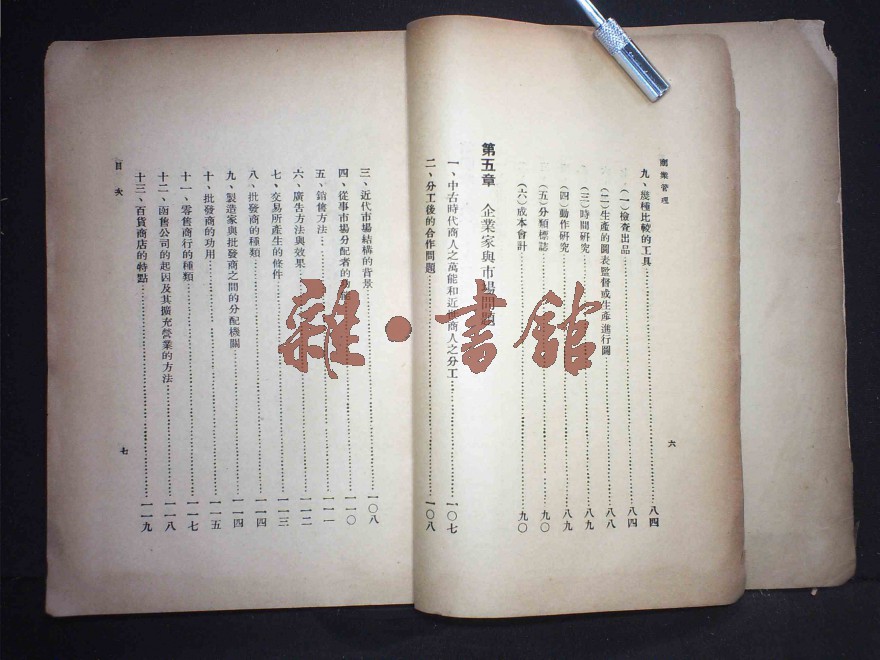 商業管理
九、幾種比較的工具……八四
（一）檢查出品……八四
（二）生產的圖表監督或生產進行圖……八八
（三）時間研究……八九
（四）動作研究……八九
（五）分類標誌……九〇
（六）成本會計……九〇
第五章 企業家與市場問題
一、中古時代商人之萬能和近世商人之分工……一〇七
二、分工後的合作問題……一〇八
六
三、近代市場結構的背景……一〇八
四、從事市場分配者的功能……一一〇
五、銷售方法……一一一
六、廣告方法與效果……一一二
七、交易所產生的條件……一一三
八、批發商的種類……一一四
九、製造家與批發商之間的分配機關……一一四
十、批發商的功用……一一五
十一、零售商行的種類……一一七
十二、函售公司的起因及其擴充營業的方法……一一八
十三、百貨商店的特點……一一九
目次
七
雜·書館